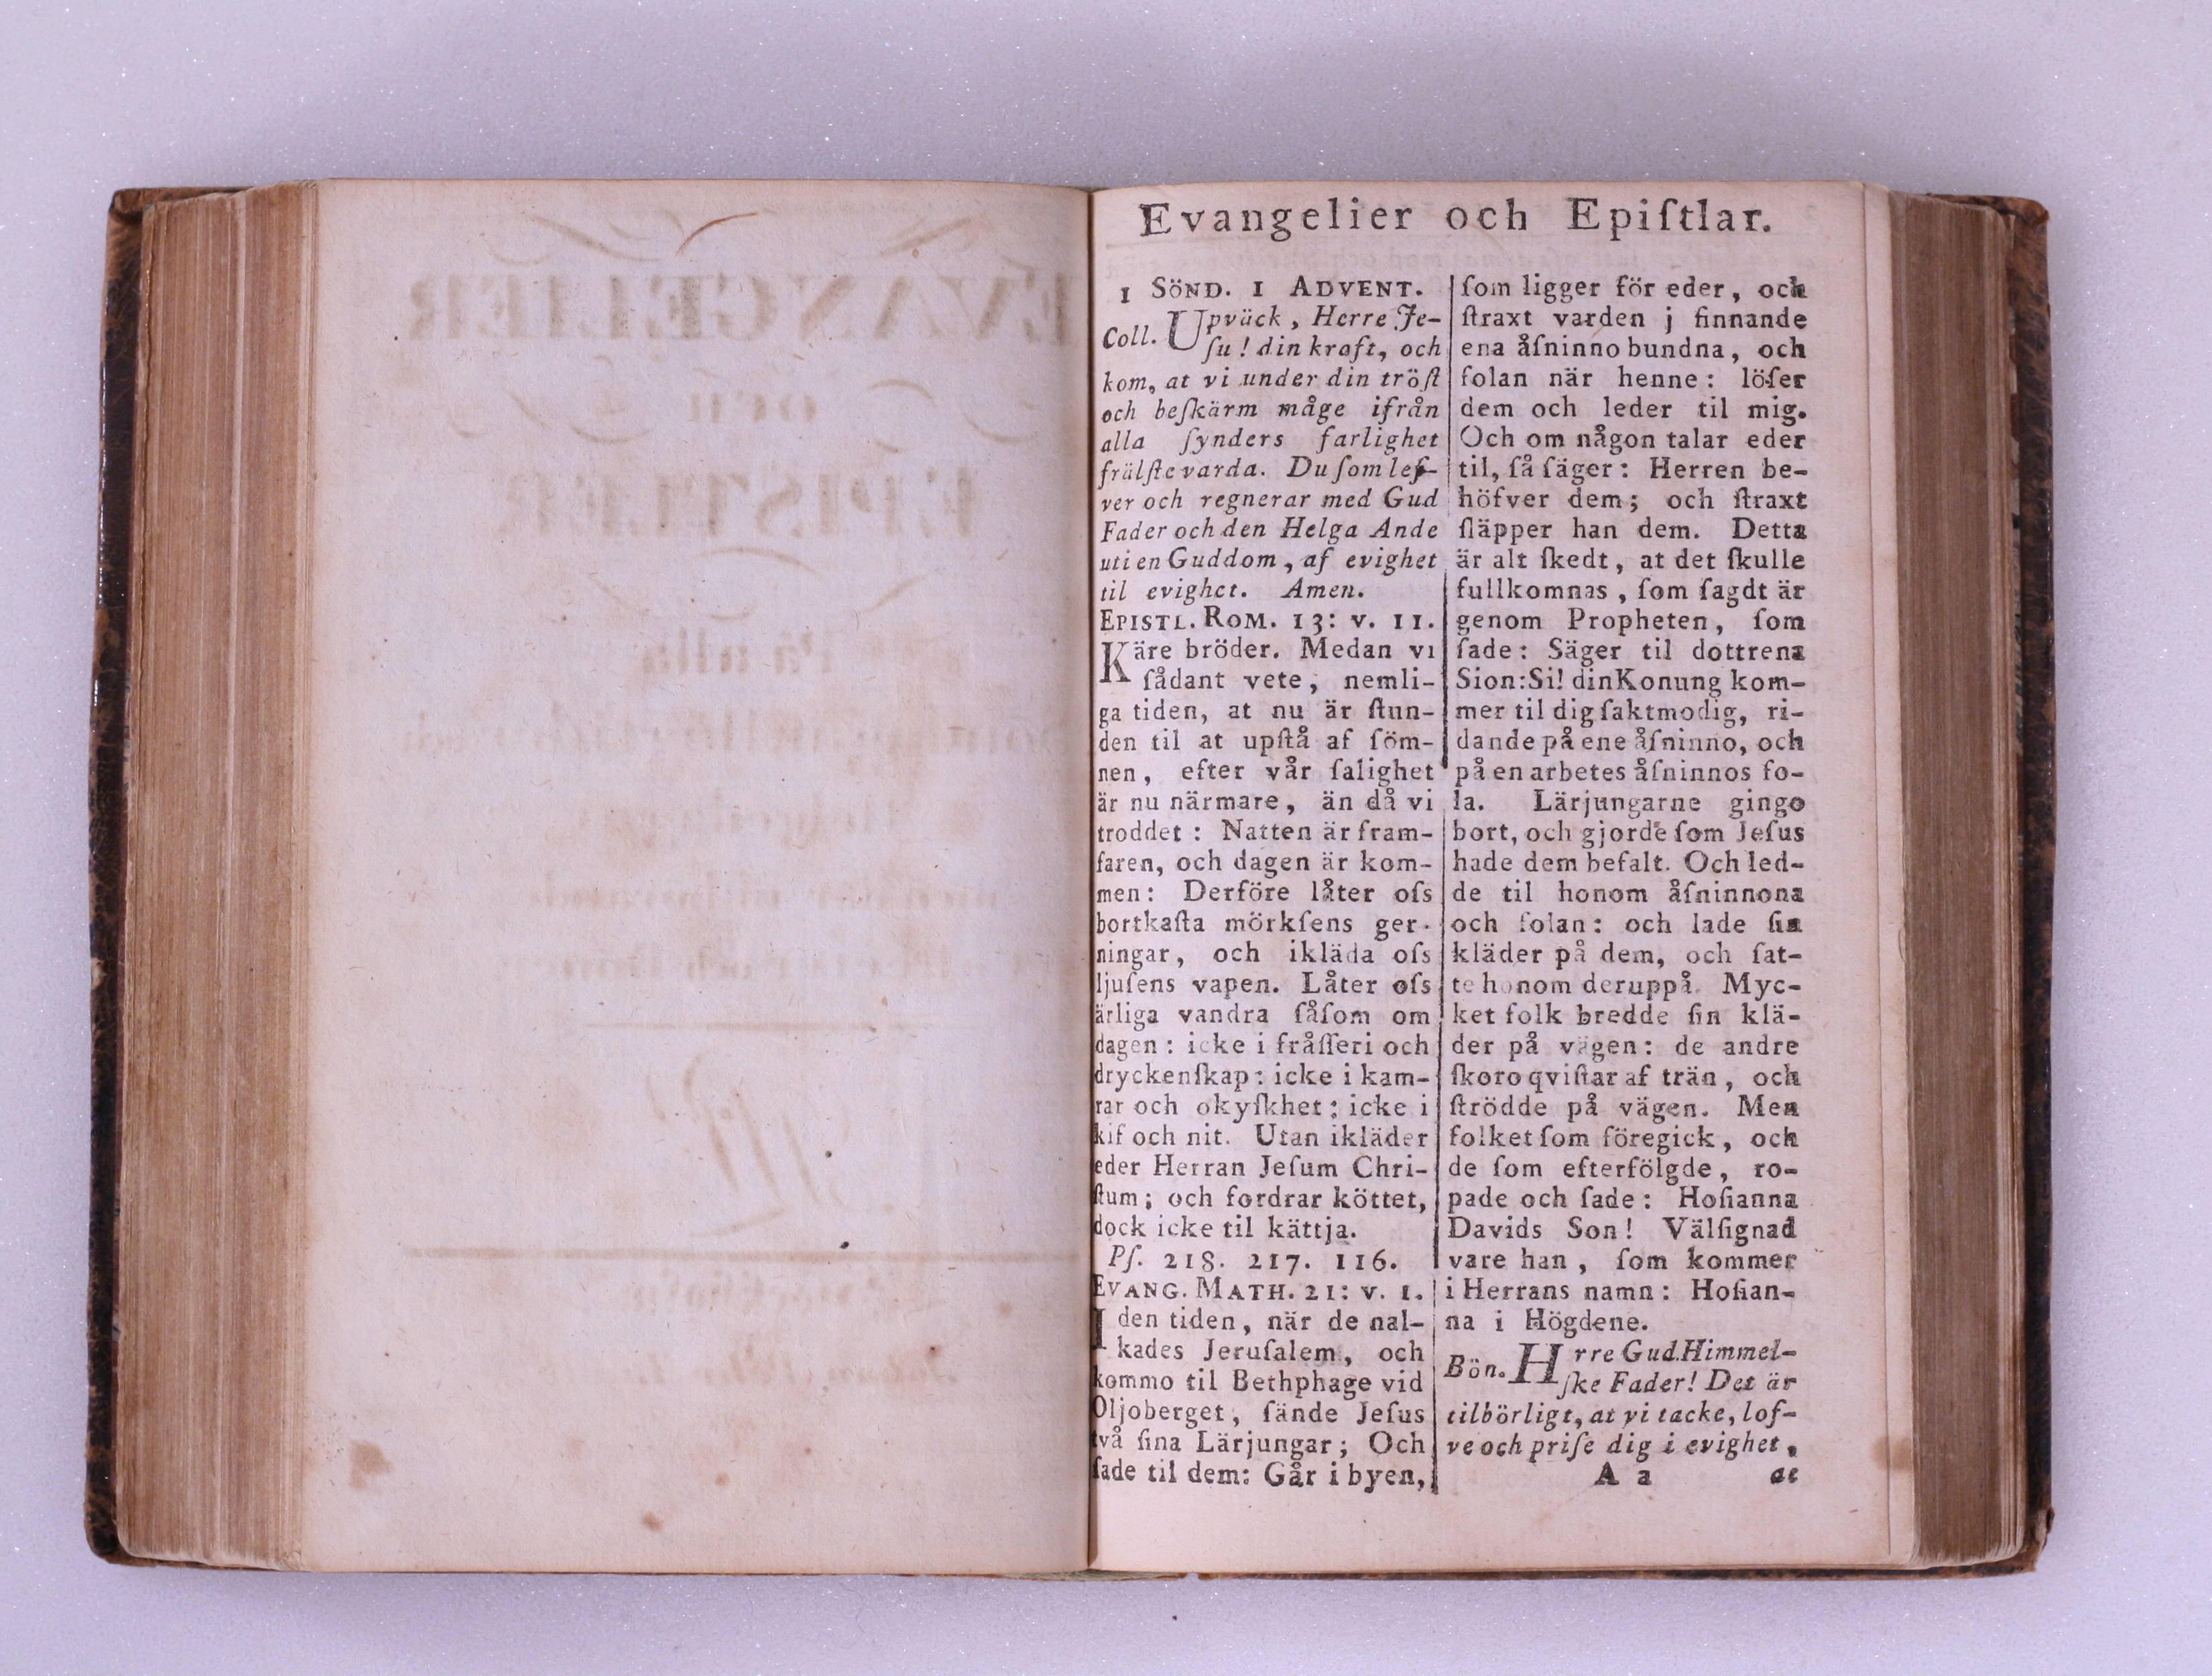 EVANGELIER
OCH
EPISTLER
På alla
Evangelier och Epiſtlar.
1 SÖND. I ADVENT.
Coll. Upväck, Herre Je-
ſu! din kraft, och
kom, at vi under din tröſt
och beſkärm måge ifrån
alla ſynders farlighet
frälſte varda. Du ſom lef-
ver och regnerar med Gud
Fader och den Helga Ande
uti en Guddom, af evighet
til evighet. Amen.
EPISTL. ROM. 13: v. 11.
Käre bröder. Medan vi
ſådant vete, nemli-
ga tiden, at nu är ſtun-
den til at upſtå af ſöm-
nen, efter vår ſalighet
är nu närmare, än då vi
troddet: Natten är fram-
faren, och dagen är kom-
men: Derföre låter oſs
bortkaſta mörkſens ger-
ningar, och ikläda oſs
ljuſens vapen. Låter oſs
ärliga vandra ſåſom om
dagen: icke i fråſſeri och
dryckenſkap: icke i kam-
rar och okyſkhet: icke i
kif och nit. Utan ikläder
eder Herran Jeſum Chri-
ſtum; och fordrar köttet,
dock icke til kättja.
Pſ. 218. 217. 116.
EVANG. MATH. 21: v. 1.
I den tiden, när de nal-
kades Jeruſalem, och
kommo til Bethphage vid
Oljoberget, ſände Jeſus
två ſina Lärjungar; Och
ſade til dem: Går i byen,
ſom ligger för eder, och
ſtraxt varden j finnande
ena åſninno bundna, och
folan när henne: löſer
dem och leder til mig.
Och om någon talar eder
til, ſå ſäger: Herren be-
höfver dem; och ſtraxt
ſläpper han dem. Detta
är alt ſkedt, at det ſkulle
fullkomnas, ſom ſagdt är
genom Propheten, ſom
ſade: Säger til dottrena
Sion: Si! din Konung kom-
mer til dig ſaktmodig, ri-
dande på ene åſninno, och
på en arbetes åſninnos fo-
la. Lärjungarne gingo
bort, och gjorde ſom Jeſus
hade dem befalt. Och led-
de til honom åſninnona
och folan: och lade ſin
kläder på dem, och ſat-
te honom deruppå. Myc-
ket folk bredde ſin klä-
der på vägen: de andre
ſkoro qviſtar af trän, och
ſtrödde på vägen. Men
folket ſom föregick, och
de ſom efterfölgde, ro-
pade och ſade: Hoſianna
Davids Son! Välſignad
vare han, ſom kommer
i Herrans namn: Hoſian-
na i Högdene.
Bön. H rre Gud Himmel-
ſke Fader! Det är
tilbörligt, at vi tacke, lof-
ve och priſe dig i evighet,
A a at